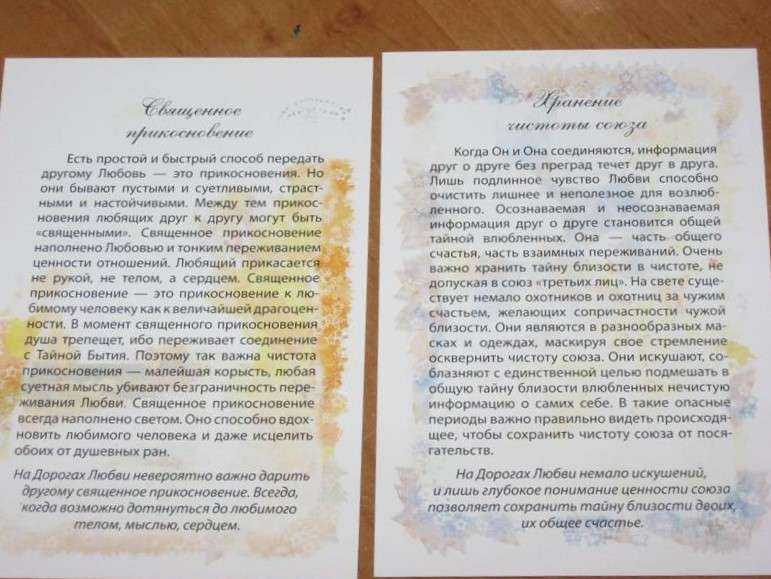 Священное
прикосновение
Есть простой и быстрый способ передать
другому Любовь — это прикосновения. Но
они бывают пустыми и суетливыми, страст-
ными и настойчивыми. Между тем прикос-
новения любящих друг к другу могут быть
«священными». Священное прикосновение
наполнено Любовью и тонким переживанием
ценности отношений. Любящий прикасается
не рукой, не телом, а сердцем. Священное
прикосновение — это прикосновение к лю-
бимому человеку как к величайшей драгоцен-
ности. В момент священного прикосновения
душа трепещет, ибо переживает соединение
с Тайной Бытия. Поэтому так важна чистота
прикосновения — малейшая корысть, любая
суетная мысль убивают безграничность пере-
живания Любви. Священное прикосновение
всегда наполнено светом. Оно способно вдох-
новить любимого человека и даже исцелить
обоих от душевных ран.
На Дорогах Любви невероятно важно дарить
другому священное прикосновение. Всегда,
когда возможно дотянуться до любимого
телом, мыслью, сердцем.
Хранение
чистоты союза
Когда Он и Она соединяются, информация
друг о друге без преград течет друг в друга.
Лишь подлинное чувство Любви способно
очистить лишнее и неполезное для возлюб-
ленного. Осознаваемая и неосознаваемая
информация друг о друге становится общей
тайной влюбленных. Она — часть общего
счастья, часть взаимных переживаний. Очень
важно хранить тайну близости в чистоте, не
допуская в союз «третьих лиц». На свете суще-
ствует немало охотников и охотниц за чужим
счастьем, желающих сопричастности чужой
близости. Они являются в разнообразных ма-
сках и одеждах, маскируя свое стремление
осквернить чистоту союза. Они искушают, со-
блазняют с единственной целью подмешать в
общую тайну близости влюбленных нечистую
информацию о самих себе. В такие опасные
периоды важно правильно видеть происходя-
щее, чтобы сохранить чистоту союза от пося-
гательств.
На Дорогах Любви немало искушений,
и лишь глубокое понимание ценности союза
позволяет сохранить тайну близости двоих,
их общее счастье.